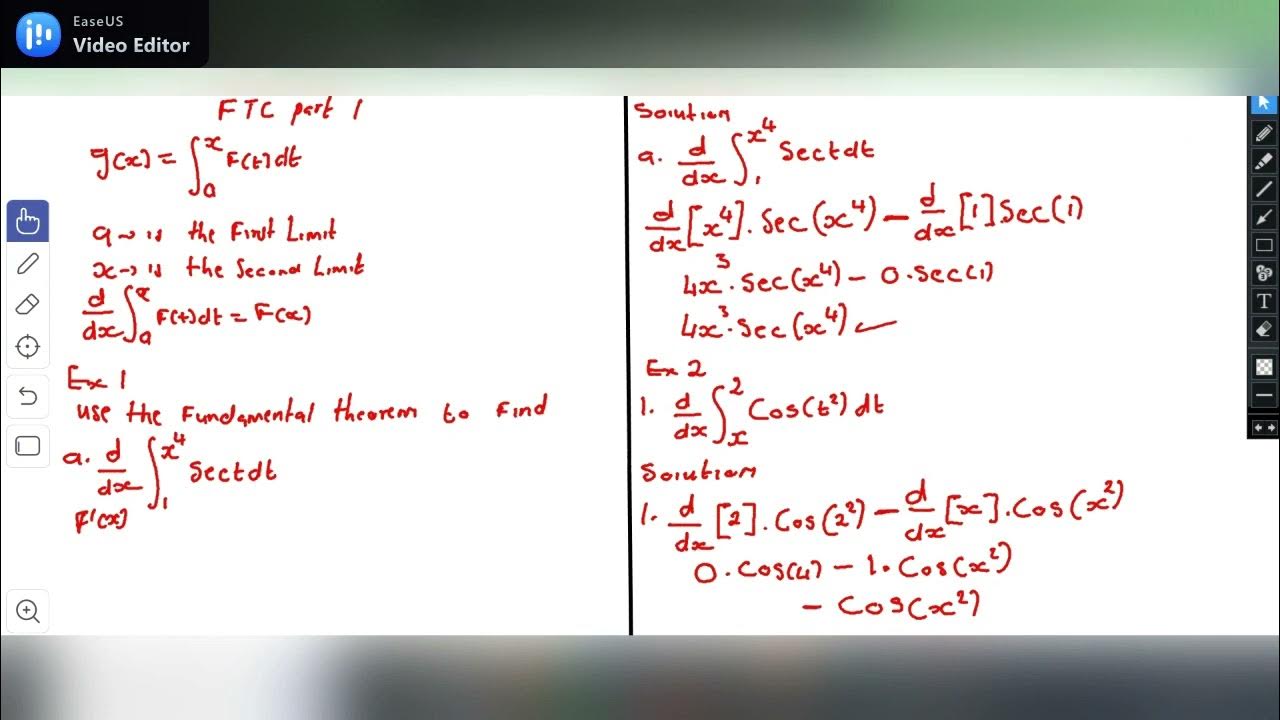 EaseUS
Video Editor
FTC part 1
g(x) = ∫ₐˣ F(t)dt
a → is the First Limit
x → is the Second Limit
d/dx ∫ₐˣ F(t)dt = F(x)
Ex 1
use the Fundamental theorem to Find
a. d/dx ∫₁^x⁴ Sectdt
F'(x)
Solution
a. d/dx ∫₁^x⁴ Sectdt
d/dx [x⁴]. Sec(x⁴) − d/dx [1] Sec(1)
4x³. Sec(x⁴) − 0. Sec(1)
4x³. Sec(x⁴)
Ex 2
1. d/dx ∫ₓ² Cos(t²) dt
Solution
1. d/dx [2]. Cos(2²) − d/dx [x]. Cos(x²)
0. Cos(4) − 1. Cos(x²)
− Cos(x²)
T